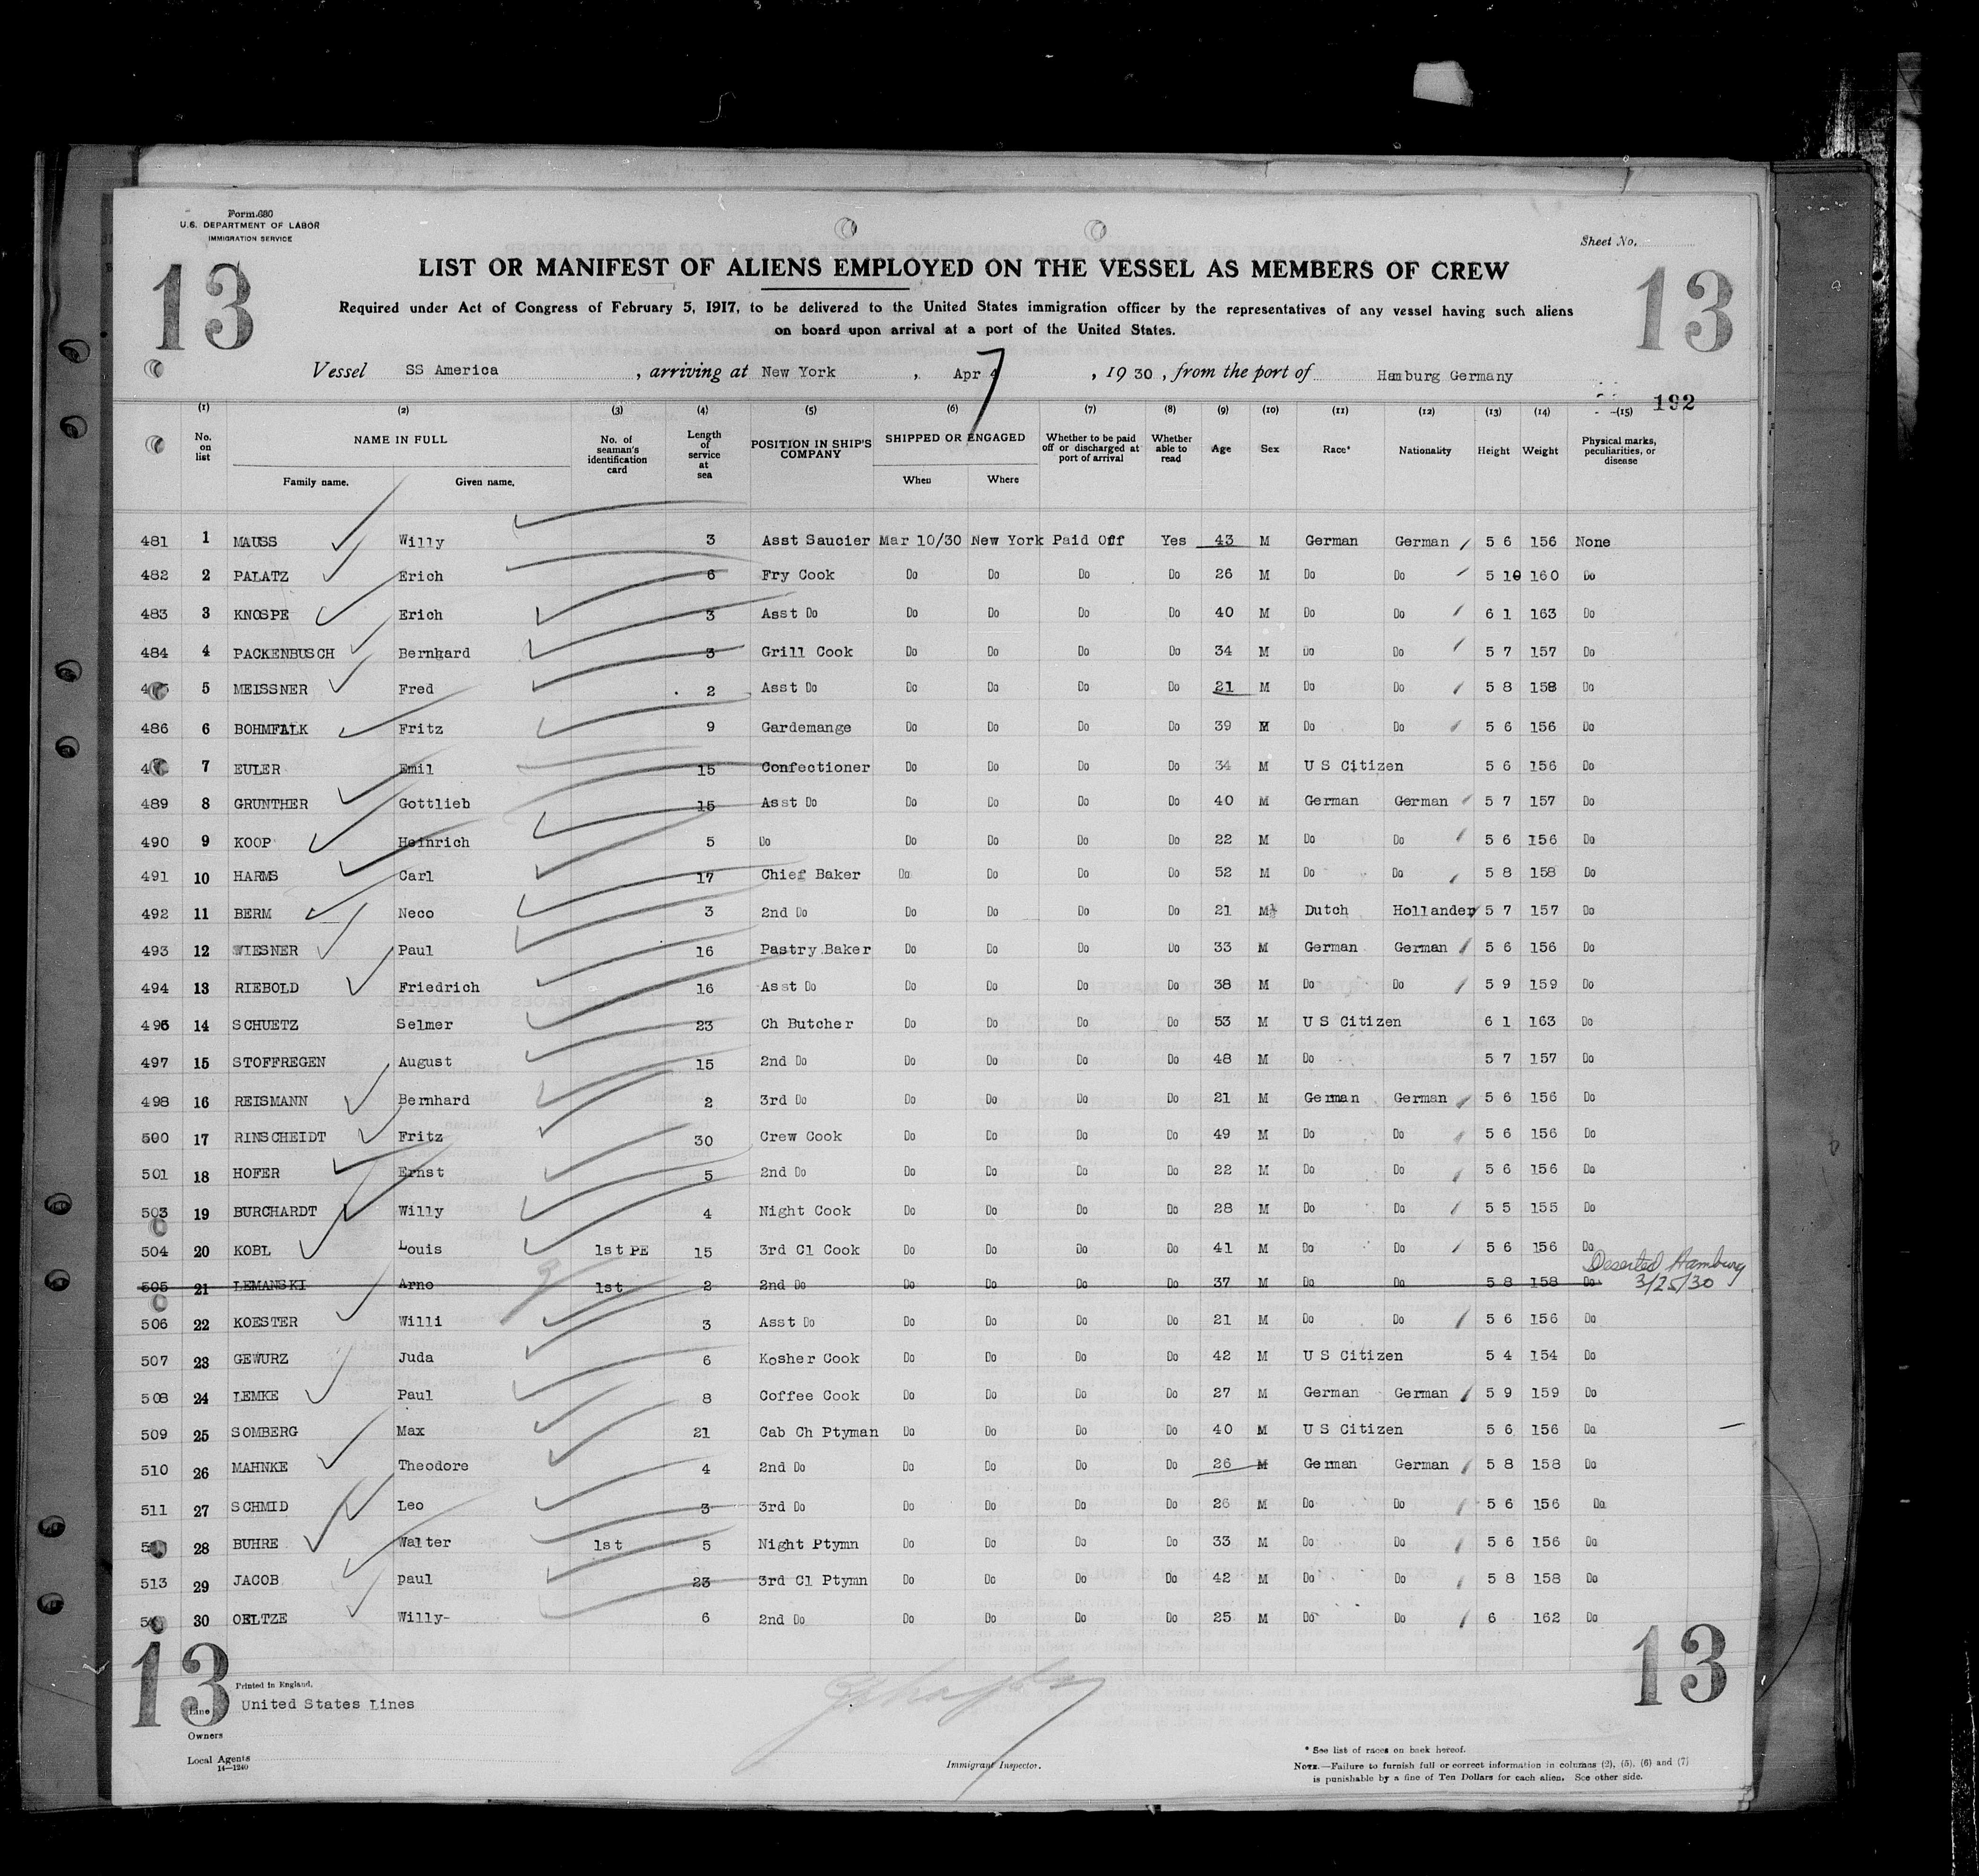 Form 680
U.S. DEPARTMENT OF LABOR
IMMIGRATION SERVICE
Sheet No.
13 13
LIST OR MANIFEST OF ALIENS EMPLOYED ON THE VESSEL AS MEMBERS OF CREW
Required under Act of Congress of February 5, 1917, to be delivered to the United States immigration officer by the representatives of any vessel having such aliens
on board upon arrival at a port of the United States.
Vessel SS America, arriving at New York, Apr 7, 1930, from the port of Hamburg Germany
192
(1) (2) (3) (4) (5) (6) (7) (8) (9) (10) (11) (12) (13) (14) (15)
No. on list NAME IN FULL Family name. Given name. No. of seaman's identification card Length of service at sea POSITION IN SHIP'S COMPANY SHIPPED OR ENGAGED When Where Whether to be paid off or discharged at port of arrival Whether able to read Age Sex Race* Nationality Height Weight Physical marks, peculiarities, or disease
481 1 MAUSS Willy 3 Asst Saucier Mar 10/30 New York Paid Off Yes 43 M German German 5 6 156 None
482 2 PALATZ Erich 6 Fry Cook Do Do Do Do 26 M Do Do 5 10 160 Do
483 3 KNOSPE Erich 3 Asst Do Do Do Do Do 40 M Do Do 6 1 163 Do
484 4 PACKENBUSCH Bernhard 3 Grill Cook Do Do Do Do 34 M Do Do 5 7 157 Do
5 MEISSNER Fred 2 Asst Do Do Do Do Do 21 M Do Do 5 8 158 Do
486 6 BOHMFALK Fritz 9 Gardemange Do Do Do Do 39 M Do Do 5 6 156 Do
7 EULER Emil 15 Confectioner Do Do Do Do 34 M U S Citizen 5 6 156 Do
489 8 GRUNTHER Gottlieb 15 Asst Do Do Do Do Do 40 M German German 5 7 157 Do
490 9 KOOP Heinrich 5 Do Do Do Do Do 22 M Do Do 5 6 156 Do
491 10 HARMS Carl 17 Chief Baker Do Do Do Do 52 M Do Do 5 8 158 Do
492 11 BERM Neco 3 2nd Do Do Do Do Do 21 M Dutch Hollander 5 7 157 Do
493 12 WIESNER Paul 16 Pastry Baker Do Do Do Do 33 M German German 5 6 156 Do
494 13 RIEBOLD Friedrich 16 Asst Do Do Do Do Do 38 M Do Do 5 9 159 Do
496 14 SCHUETZ Selmer 23 Ch Butcher Do Do Do Do 53 M U S Citizen 6 1 163 Do
497 15 STOFFREGEN August 15 2nd Do Do Do Do Do 48 M Do 5 7 157 Do
498 16 REISMANN Bernhard 2 3rd Do Do Do Do Do 21 M German German 5 6 156 Do
500 17 RINSCHEIDT Fritz 30 Crew Cook Do Do Do Do 49 M Do Do 5 6 156 Do
501 18 HOFER Ernst 5 2nd Do Do Do Do Do 22 M Do Do 5 6 156 Do
503 19 BURCHARDT Willy 4 Night Cook Do Do Do Do 28 M Do Do 5 5 155 Do
504 20 KOBL Louis 1st PE 15 3rd Cl Cook Do Do Do Do 41 M Do Do 5 6 156 Do
505 21 LEMANSKI Arno 1st 2 2nd Do Do Do Do Do 37 M Do Do 5 8 158 Do Deserted Hamburg 3/25/30
506 22 KOESTER Willi 3 Asst Do Do Do Do Do 21 M Do Do 5 6 156 Do
507 23 GEWURZ Juda 6 Kosher Cook Do Do Do Do 42 M U S Citizen 5 4 154 Do
508 24 LEMKE Paul 8 Coffee Cook Do Do Do Do 27 M German German 5 9 159 Do
509 25 SOMBERG Max 21 Cab Ch Ptyman Do Do Do Do 40 M U S Citizen 5 6 156 Do
510 26 MAHNKE Theodore 4 2nd Do Do Do Do Do 26 M German German 5 8 158 Do
511 27 SCHMID Leo 3 3rd Do Do Do Do Do 26 M Do Do 5 6 156 Do
28 BUHRE Walter 1st 5 Night Ptymn Do Do Do Do 33 M Do Do 5 6 156 Do
513 29 JACOB paul 23 3rd Cl Ptymn Do Do Do Do 42 M Do Do 5 8 158 Do
30 OELTZE Willy- 6 2nd Do Do Do Do Do 25 M Do Do 6 162 Do
13 13
Printed in England.
Line United States Lines
Owners
Local Agents
14—1240
Immigrant Inspector.
* See list of races on back hereof.
NOTE.—Failure to furnish full or correct information in columns (2), (5), (6) and (7)
is punishable by a fine of Ten Dollars for each alien. See other side.